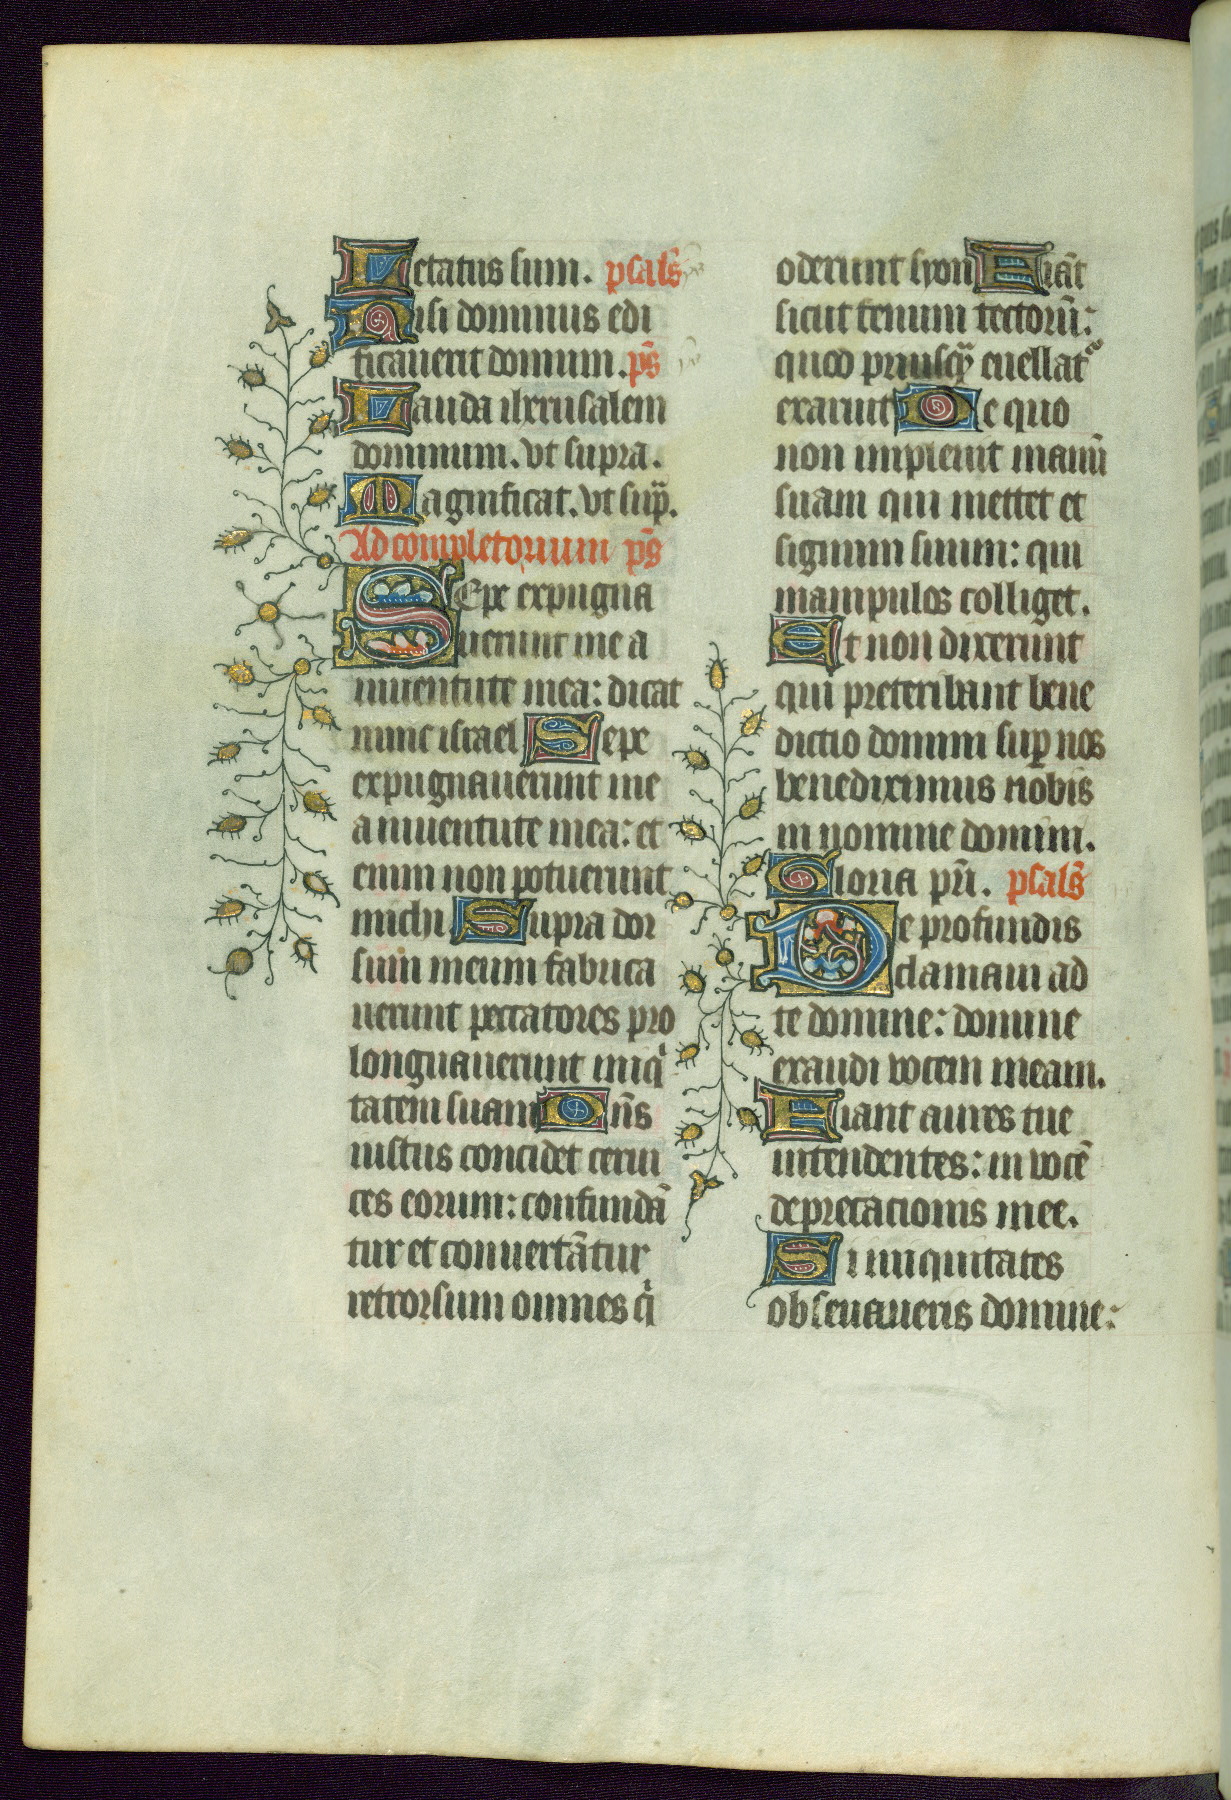 Letatus sum. psalm̄s
Nisi dominus edi
ficauerit domum. ps̄
Lauda iherusalem
dominum. vt supra.
Magnificat. vt sup̄.
Ad completorium ps̄
SEpe expugna
uerunt me a
iuuentute mea: dicat
nunc israel Sepe
expugnauerunt me
a iuuentute mea: et
enim non potuerunt
michi Supra dor
sum meum fabrica
uerunt peccatores pro
longuauerunt iniqͥ
tatem suam Dn̄s
iustus concidet cerui
ces eorum: confundā
tur et conuertātur
retrorsum omnes qͥ
oderunt syon Fiāt
sicut fenum tectorū:
quod priusqͣ euellatᷣ
exaruit De quo
non impleuit manū
suam qui mettet et
signum suum: qui
manipulos colliget.
Et non dixerunt
qui preteribant bene
dictio domini suꝑ nos
benediximus nobis
in nomine domini.
Gloria pr̄i. psalm̄s
De profundis
clamaui ad
te domine: domine
exaudi vocem meam.
Fiant aures tue
intendentes: in vocē
deprecacionis mee.
Si iniquitates
obseuaueris domine: